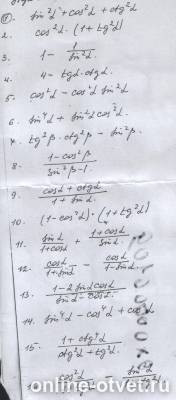 1. sin²α + cos²α + ctg²α
2. cos²α · (1 + tg²α)
3. 1 - 1/sin²α
4. 4 - tgα · ctgα
5. cos²α - cos²α sin²α
6. sin⁴α + sin²α cos²α
7. tg²β · ctg²β - sin²β
8. (1 - cos²β)/(sin²β - 1)
9. (cosα + ctgα)/(1 + sinα)
10. (1 - cos²α) · (1 + tg²α)
11. sinα/(1 + cosα) + (1 + cosα)/sinα
12. cosα/(1 + sinα) - cosα/(1 - sinα)
13. (1 - 2 sinα cosα)/(sinα - cosα)
14. sin⁴α - cos⁴α + cos²α
15. (1 + ctg⁴α)/(ctg²α + tg²α)
cos²α sin²α
online-otvet.ru